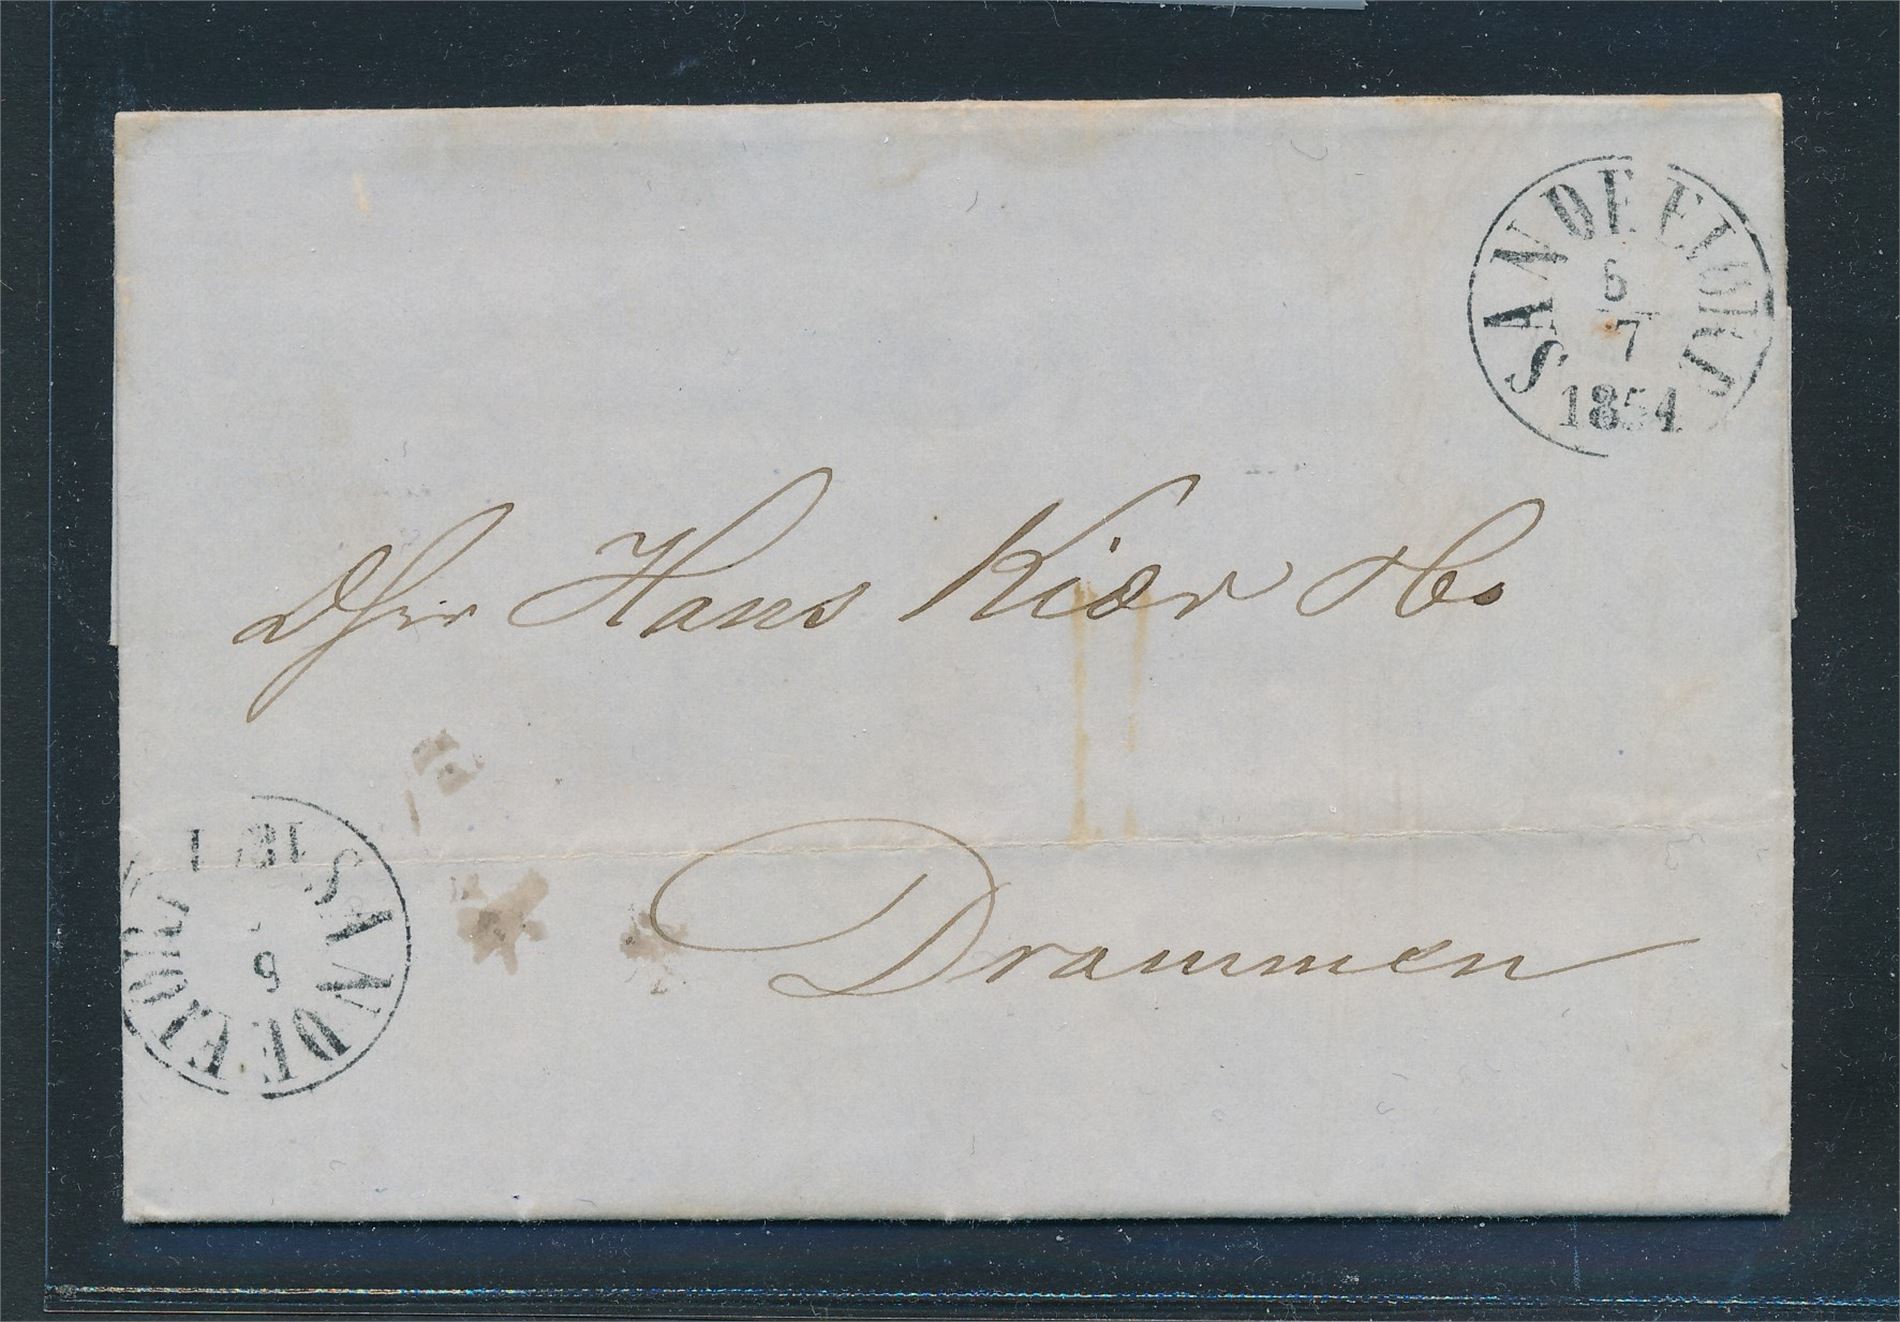 SANDEFIORD
6
7
1854
DHrr Hans Kiær & Co
Drammen
SANDEFIORD
6